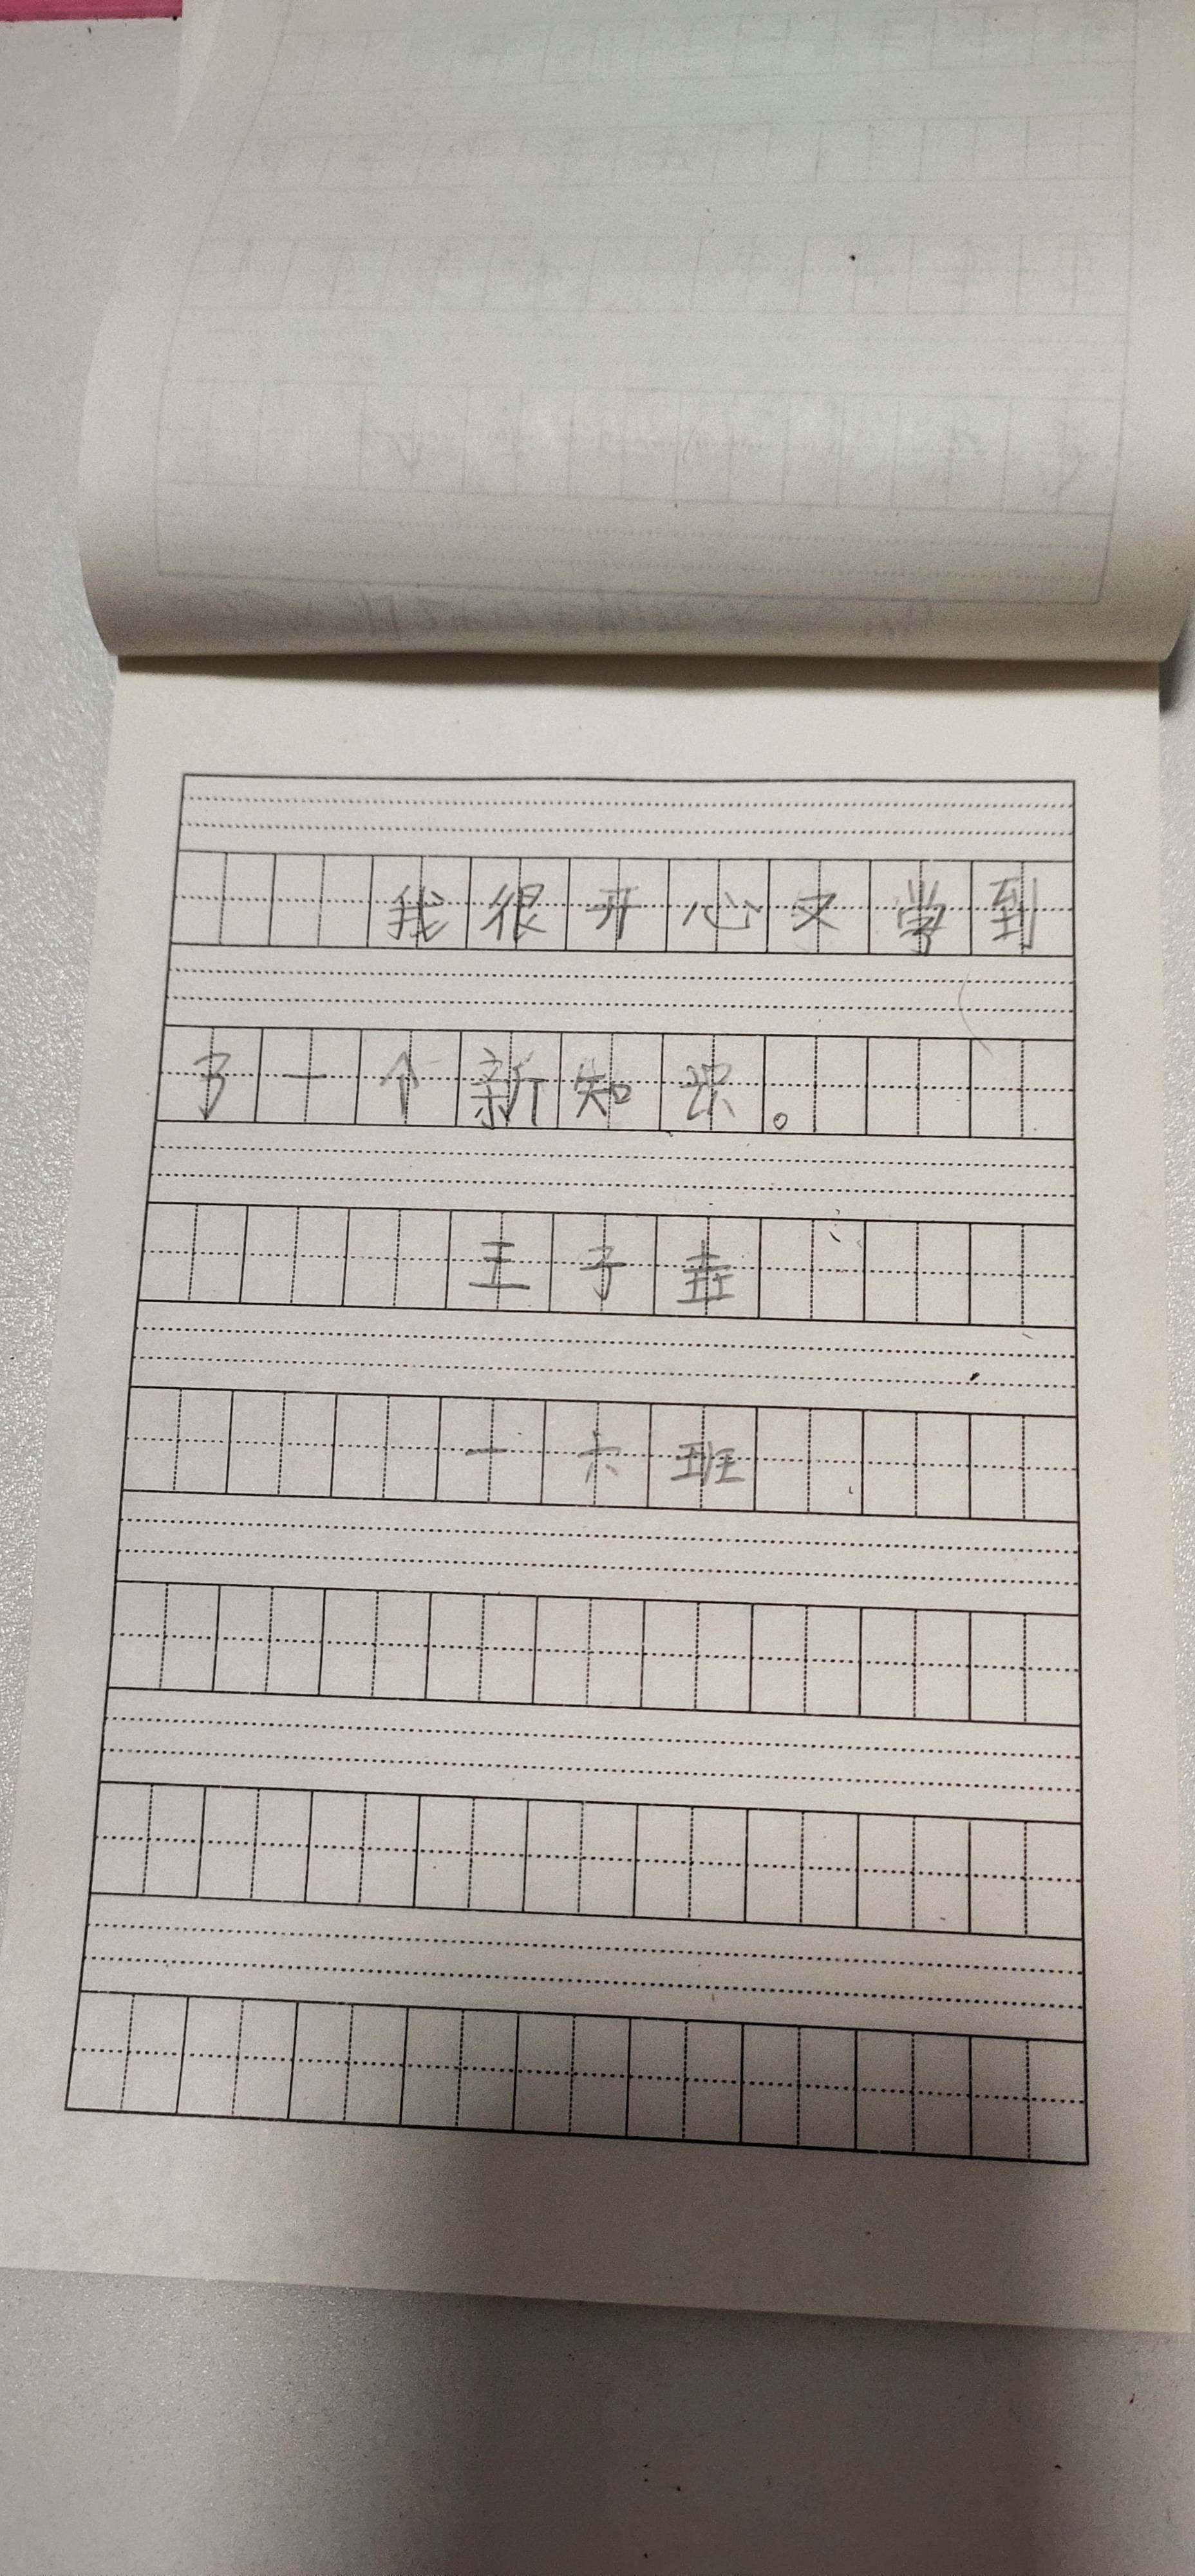 我很开心又学到
了一个新知识。
王子垚
一六班